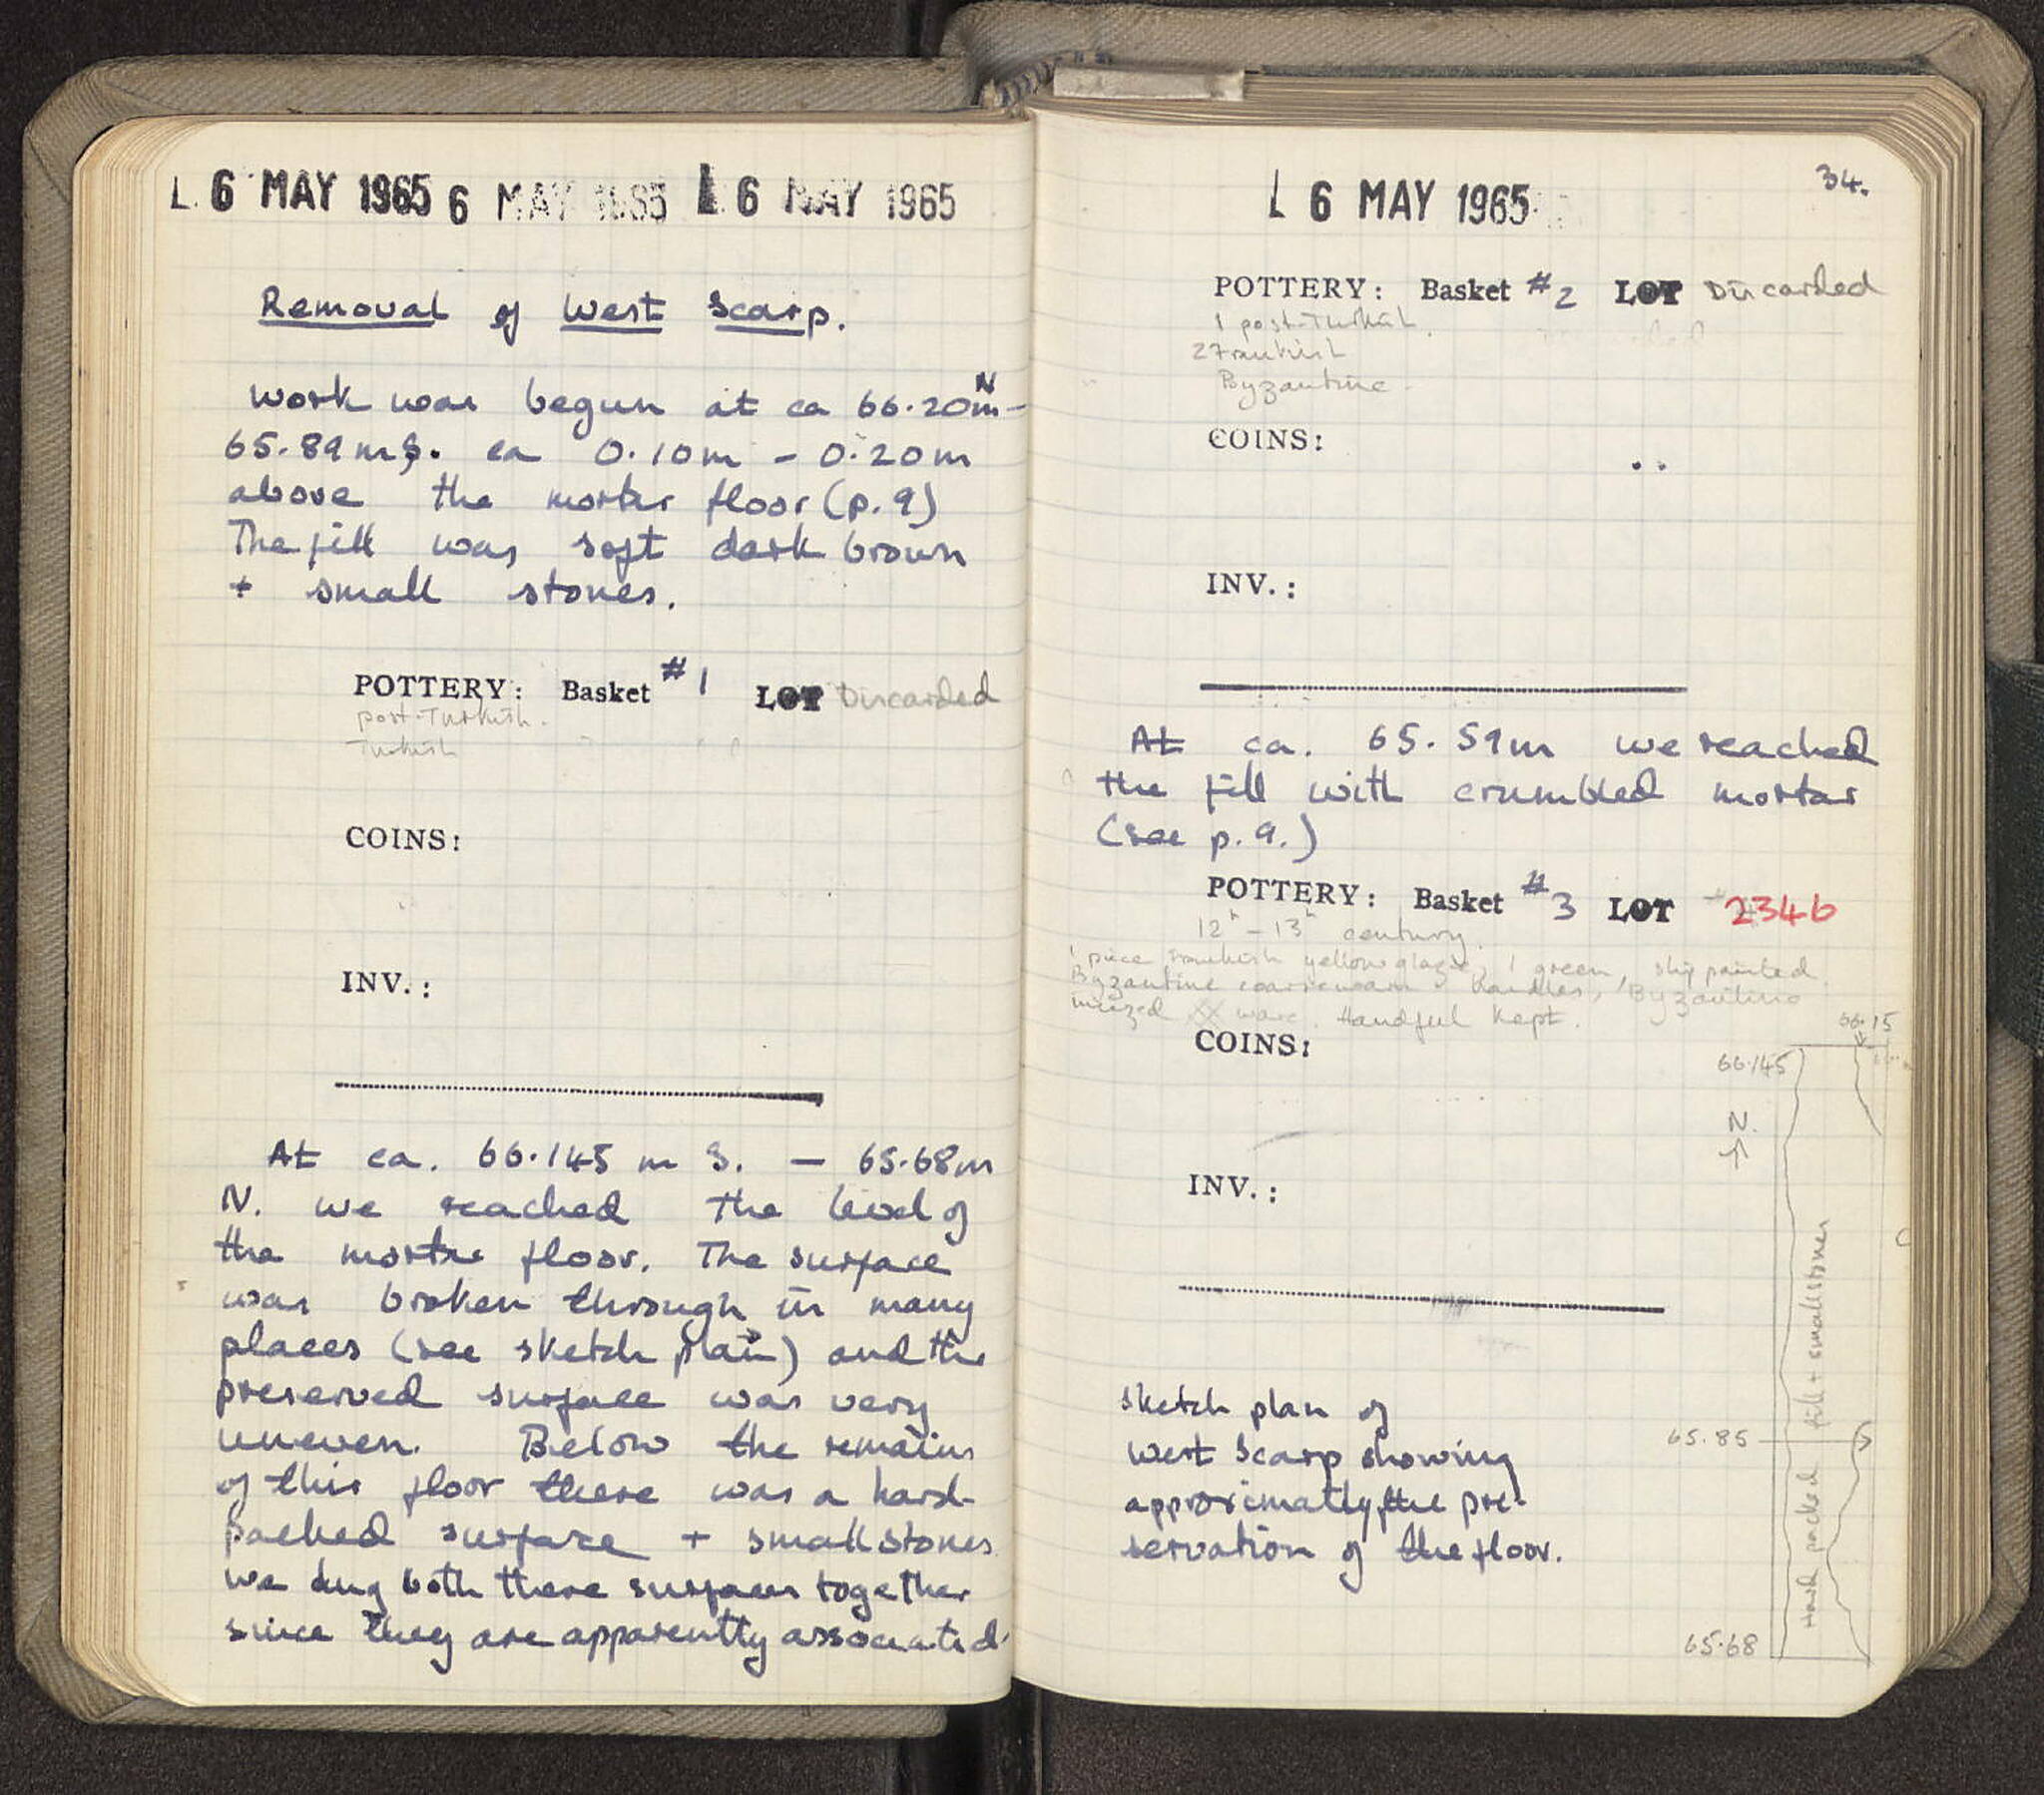 L 6 MAY 1965 6 MAY 1965 L 6 MAY 1965
Removal of West Scarp.
Work was begun at ca 66.20m N –
65.89 m S. ca 0.10m – 0.20m
above the mortar floor (p. 9)
The fill was soft dark brown
+ small stones.
POTTERY: Basket #1 LOT Discarded
post-Turkish.
Turkish
COINS:
INV.:
At ca. 66.145 m S. – 65.68m
N. we reached the level of
the mortar floor. The surface
was broken through in many
places (see sketch plan) and the
preserved surface was very
uneven. Below the remains
of this floor there was a hard-
packed surface + small stones
we dug both these surfaces together
since they are apparently associated.
L 6 MAY 1965
34.
POTTERY: Basket #2 LOT Discarded
1 post-Turkish.
Byzantine.
COINS:
INV.:
At ca. 65.59m we reached
the fill with crumbled mortar
(see p. 9.)
POTTERY: Basket #3 LOT 2346
12th – 13th century.
1 piece yellow glaze, 1 green, slip painted.
Byzantine handles, 1 Byzantine
ware. Handful kept.
COINS:
INV.:
66.15
66.145
N.
Hard packed fill + small stones
65.85
65.68
sketch plan of
west scarp showing
approximatly the pre-
servation of the floor.